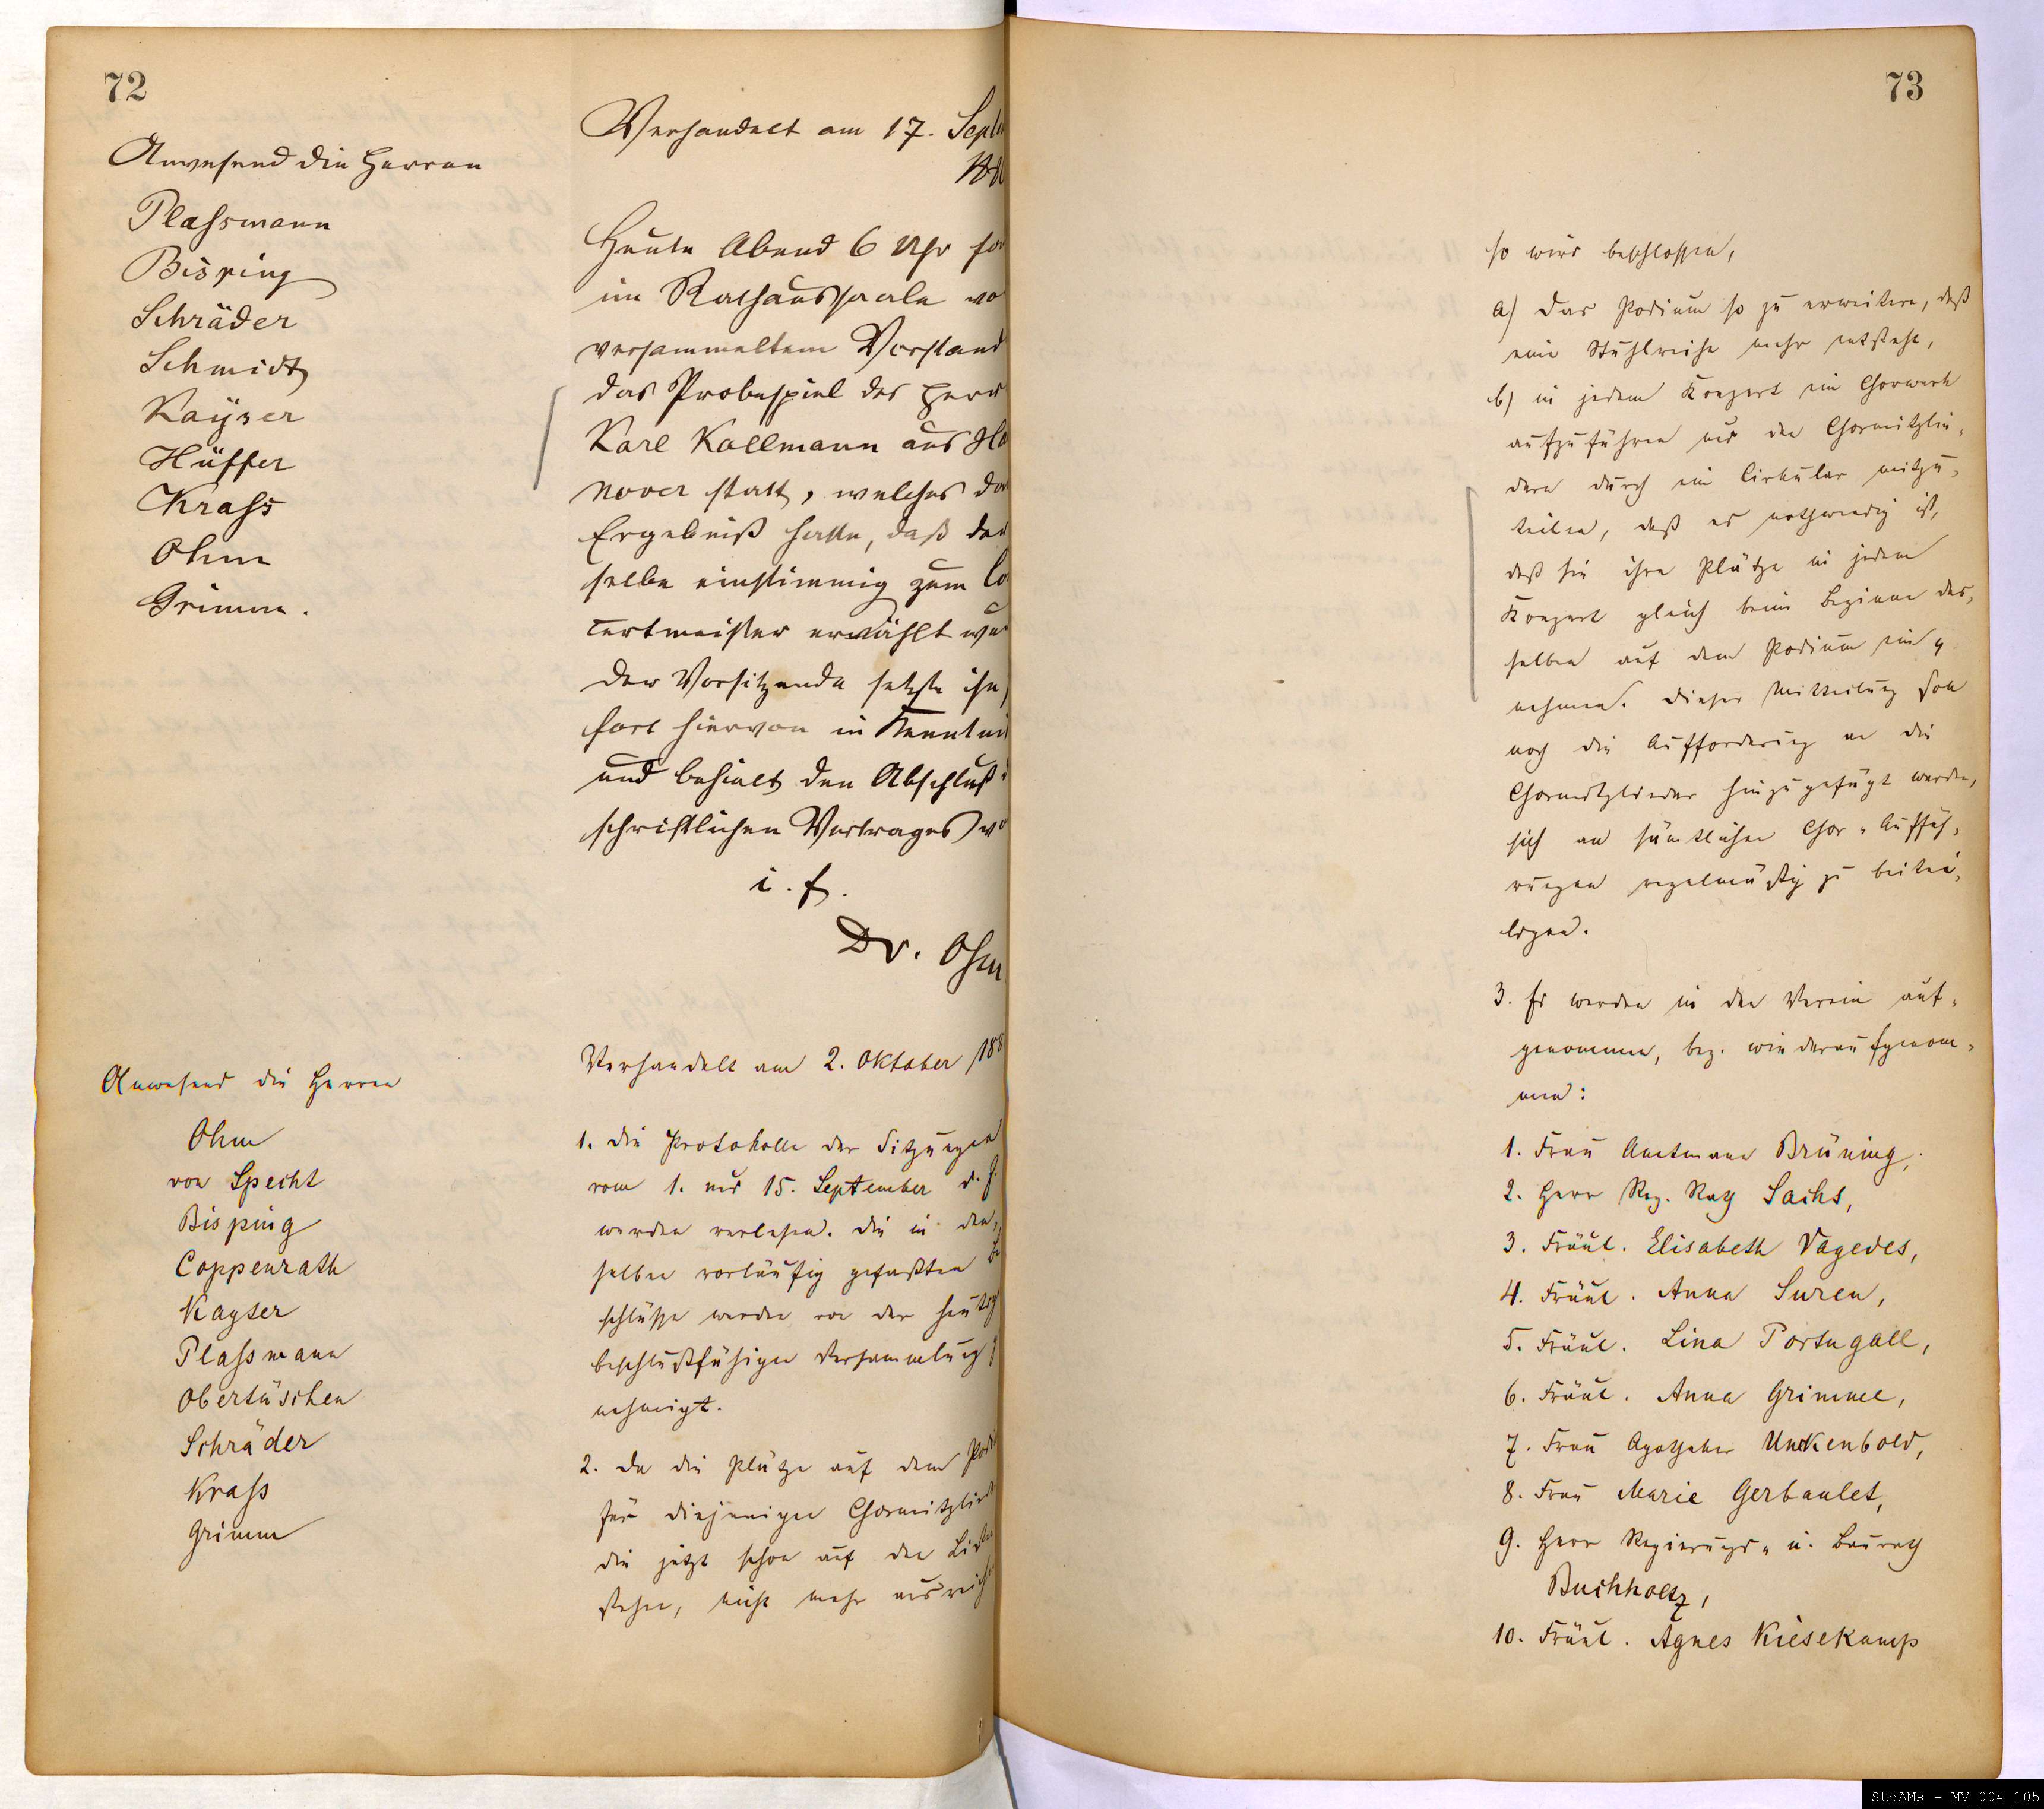 72
Anwesend die Herren
Plassmann
Bisping
Schräder
Schmidt
Kayser
Hüffer
Krass
Ohm
Grimm.
Verhandelt am 17. Septe
188
Heute Abend 6 Uhr fa
im Rathaussaale vo
versammeltem Vorstand
das Probespiel des Herr
Karl Kollmann aus Ha
nover statt, welches da
Ergebniß hatte, daß der
selbe einstimmig zum Co
certmeister erwählt wu
Der Vorsitzende setzte ihn
fort hiervon in Kenntni
und behielt den Abschluß
schriftlichen Vertrages vo
i. f.
Dr. Ohm
Anwesend die Herren
Ohm
von Specht
Bisping
Coppenrath
Kayser
Plassmann
Obertüschen
Schräder
Krass
Grimm
Verhandelt am 2. Oktober 188
1. Die Protokolle der Sitzungen
vom 1. und 15. September d. J.
werden verlesen. Die in den-
selben vorläufig gefaßten Be
schlüsse werden von der heutig
beschlußfähigen Versammlung g
nehmigt.
2. Da die Plätze auf dem Podi
für diejenigen Chormitglied
die jetzt schon auf den Listen
stehen, nicht mehr ausreich
73
so wird beschlossen,
a) das Podium so zu erweitern, daß
eine Stuhlreihe mehr entsteht,
b) in jedem Konzert ein Chorwerk
aufzuführen und den Chormitglie-
dern durch ein Cirkular mitzu-
teilen, daß es nothwendig ist,
daß sie ihre Plätze in jedem
Konzert gleich beim Beginne des-
selben auf dem Podium ein-
nehmen. Dieser Mitteilung soll
noch die Aufforderung an die
Chormitglieder hinzugefügt werden,
sich an sämtlichen Chor-Auffüh-
rungen regelmäßig zu betei-
ligen.
3. Es werden in den Verein auf-
genommen, bez. wiederaufgenom-
men:
1. Frau Amtmann Brüning,
2. Herr Reg. Rath Sachs,
3. Fräul. Elisabeth Vagedes,
4. Fräul. Anna Suren,
5. Fräul. Lina Portugall,
6. Fräul. Anna Grimme,
7. Frau Apotheker Unckenbold,
8. Frau Marie Gerbaulet,
9. Herr Regierungs- u. Baurath
Buchholtz,
10. Fräul. Agnes Kiesekamp
StdAMs - MV_004_105